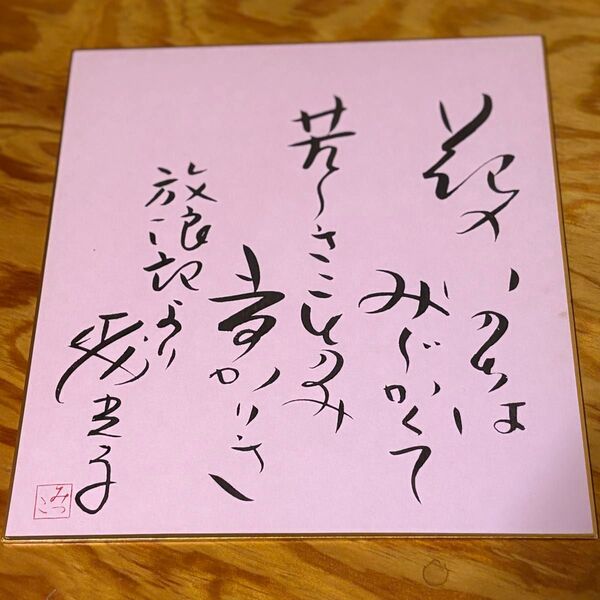 花のいのちは
みじかくて
苦しきことのみ
多かりき
放浪記より
森光子
みつこ